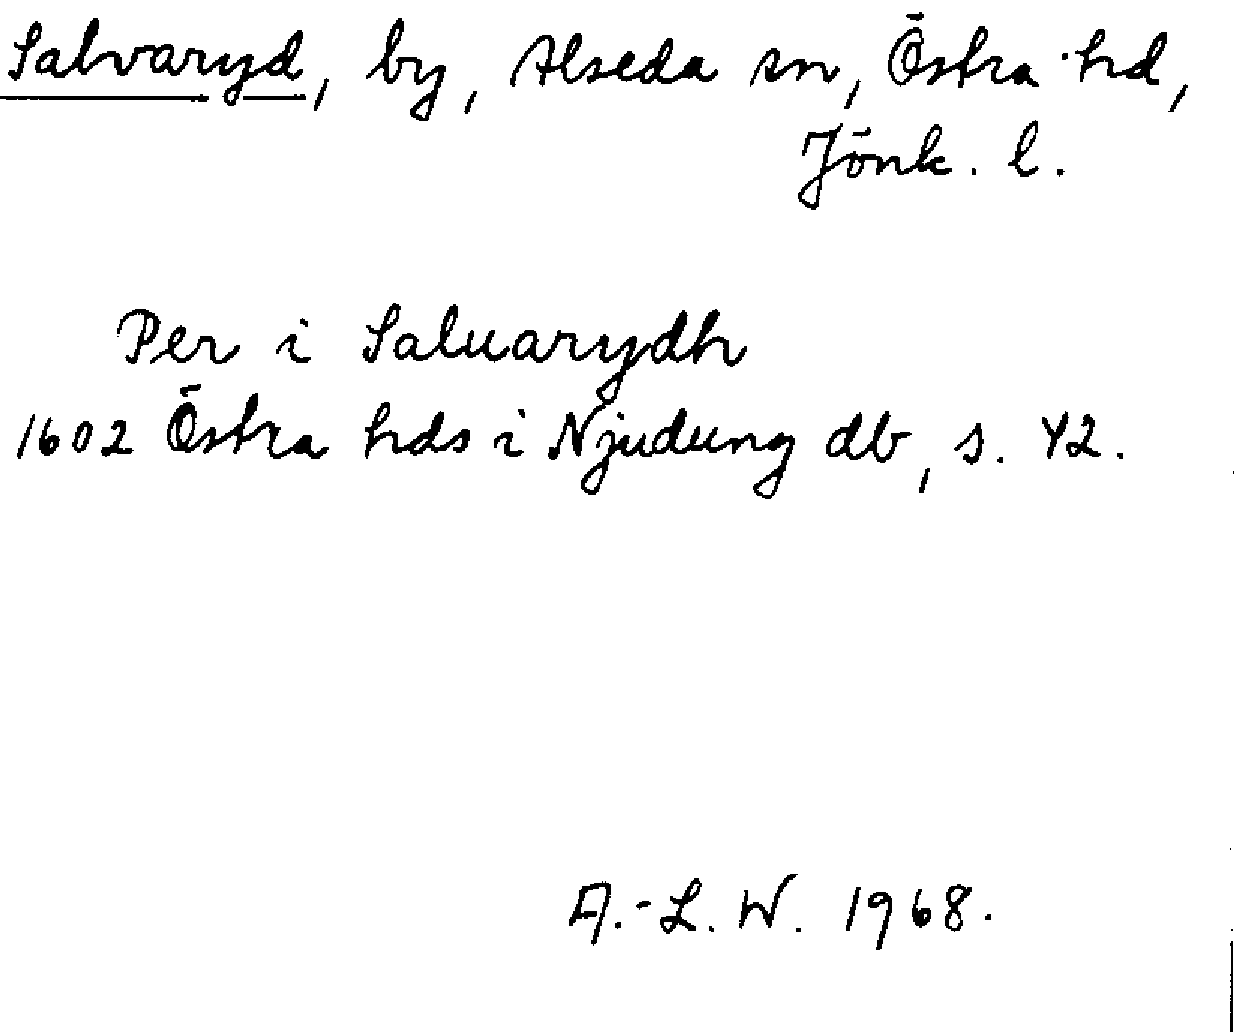 Salvaryd, by, Alseda sn, Östra hd,
Jönk. l.
Per i Saluarydh
1602 Östra hds i Njudung db, s. 42.
A.-L. W. 1968.